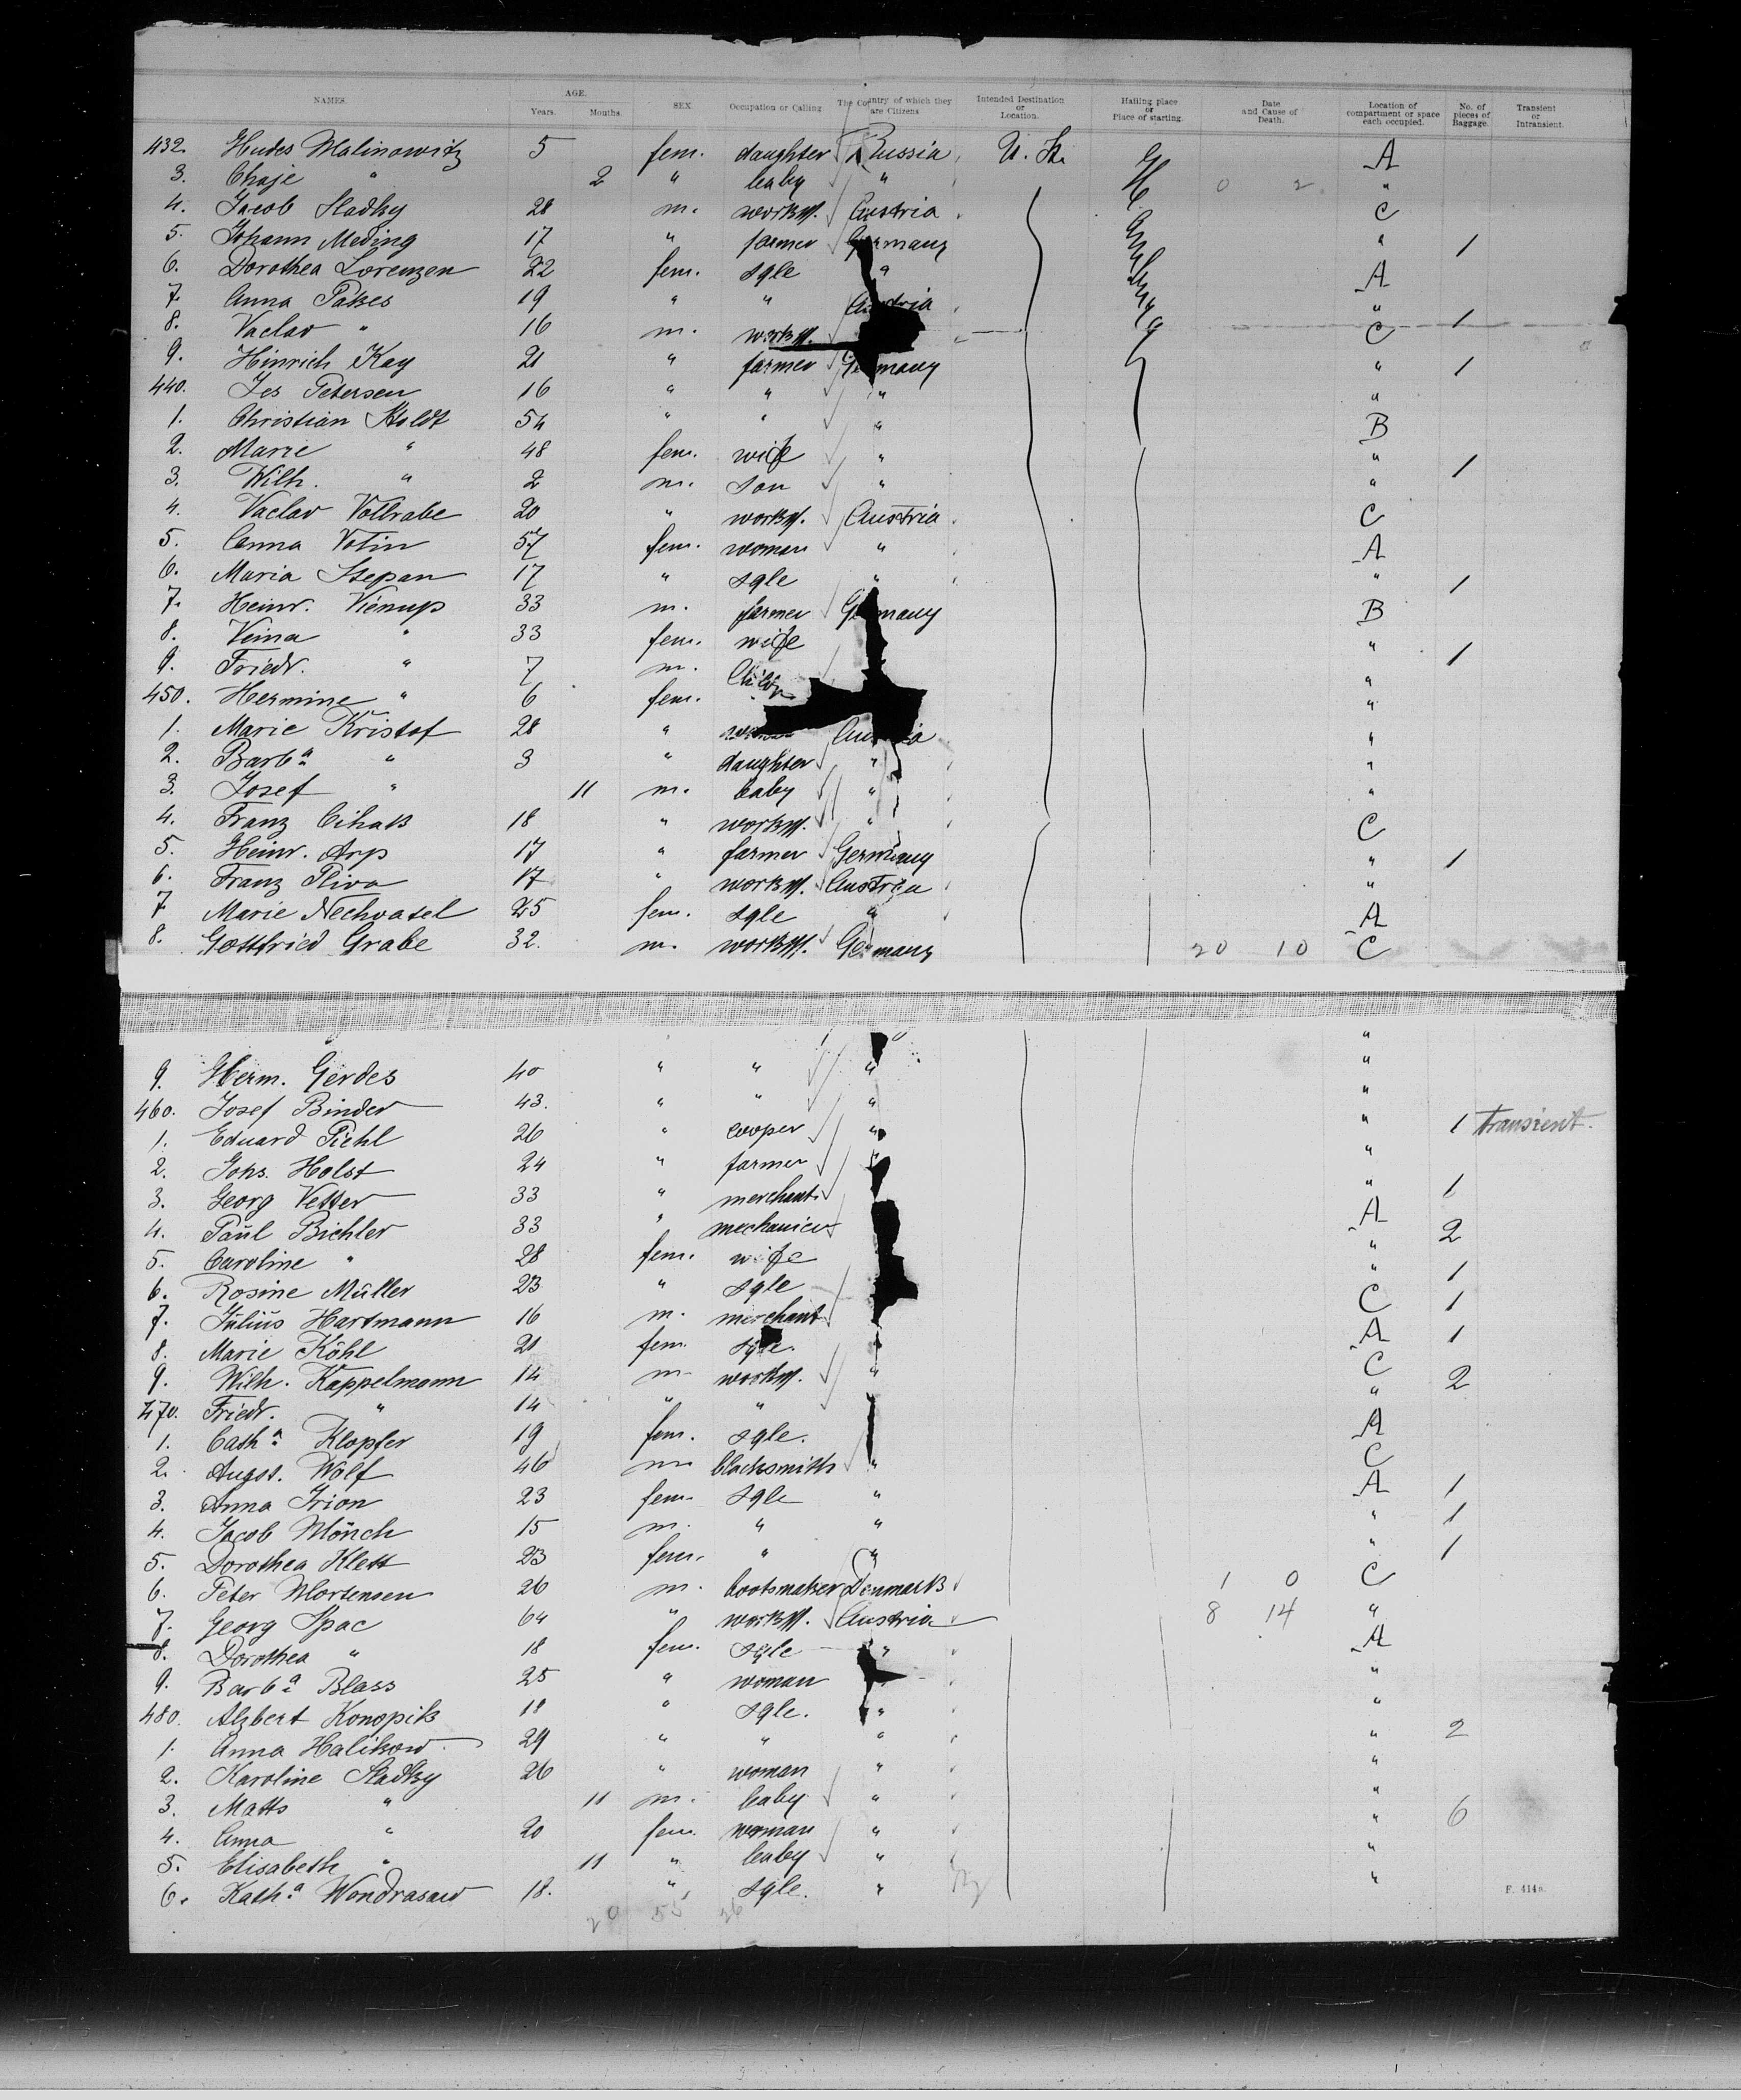 NAMES. AGE. Years. Months. SEX. Occupation or Calling The Country of which they are Citizens Intended Destination or Location. Hailing place or Place of starting. Date and Cause of Death. Location of compartment or space each occupied. No. of pieces of Baggage. Transient or Intransient.
432. Hudes Malinowitz 5 fem. daughter Russia U. St. A
3. Chaje " 2 " baby " 0 2 "
4. Jacob Sladky 28 m. workm. Austria C
5. Johann Meding 17 " farmer Germany " 1
6. Dorothea Lorenzen 22 fem. sgle " A
7. Anna Pakes 19 " " Austria "
8. Vaclav " 16 m. workm. C 1
9. Hinrich Kay 21 " farmer Germany " 1
440. Jes Petersen 16 " " " "
1. Christian Holdt 54 " " " B
2. Marie " 48 fem. wife " "
3. Wilh. " 2 m. son " " 1
4. Vaclav Vollrabe 20 " workm. Austria C
5. Anna Votin 57 fem. woman " A
6. Maria Stepan 17 " sgle " " 1
7. Heinr. Vienup 33 m. farmer Germany B
8. Veina " 33 fem. wife "
9. Friedr. " 7 m. " 1
450. Hermine " 6 fem. "
1. Marie Kristof 28 " woman Austria "
2. Barba " 3 " daughter " "
3. Josef " 11 m. baby " "
4. Franz Cihak 18 " workm. " C
5. Heinr. Arp 17 " farmer Germany " 1
6. Franz Pliva 17 " workm. Austria "
7 Marie Nechvatel 25 fem. sgle " A
8. Gottfried Grabe 32. m. workm. Germany 20 10 C
9. Herm. Gerdes 40 " " " "
460. Josef Binder 43. " " " "
1. Eduard Piehl 26 " cooper " " 1 Transient.
2. Johs. Holst 24 " farmer " "
3. Georg Vetter 33 " merchant " 1
4. Paul Bichler 33 " mechanicus A 2
5. Caroline " 28 fem. wife "
6. Rosine Müller 23 " sgle " 1
7. Julius Hartmann 16 m. merchant C 1
8. Marie Köhl 21 fem. sgle. A 1
9. Wilh. Kappelmann 14 m workm. " C 2
470. Friedr. " 14 " " "
1. Catha Klopfer 19 fem. sgle. A
2. Augst. Wolf 46 m blacksmith " C
3. Anna Irion 23 fem. sgle " A 1
4. Jacob Mönch 15 m. " " " 1
5. Dorothea Klett 23 fem. " " " 1
6. Peter Mortensen 26 m. bootsmaker Denmark 1 0 C
7. Georg Spac 64 " workm. Austria 8 14 "
8. Dorothea " 18 fem. sgle " A
9. Barba Blass 25 " woman "
480. Alzbert Konopik 18 " sgle. " "
1. Anna Halikow 29 " " " " 2
2. Karoline Sladky 26 " woman " "
3. Matts " 11 m. baby " "
4. Anna " 20 fem. woman " " 6
5. Elisabeth " 11 " baby " "
6. Katha Wondrasaw 18. " sgle. " "
20 55 26
F. 414a.